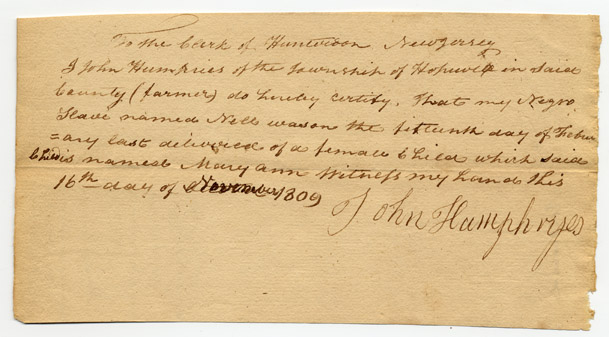 To the Clerk of Huntirdon New Jersey
I John Humpries of the Township of Hopwell in Said
County (farmer) do hereby certify. That my Negro
Slave named Nell was on the fifteenth day of Febur
=ary last delivered of a female Child which said
Child is named Mary ann Witness my hand this
16th day of November 1809
John Humphryes